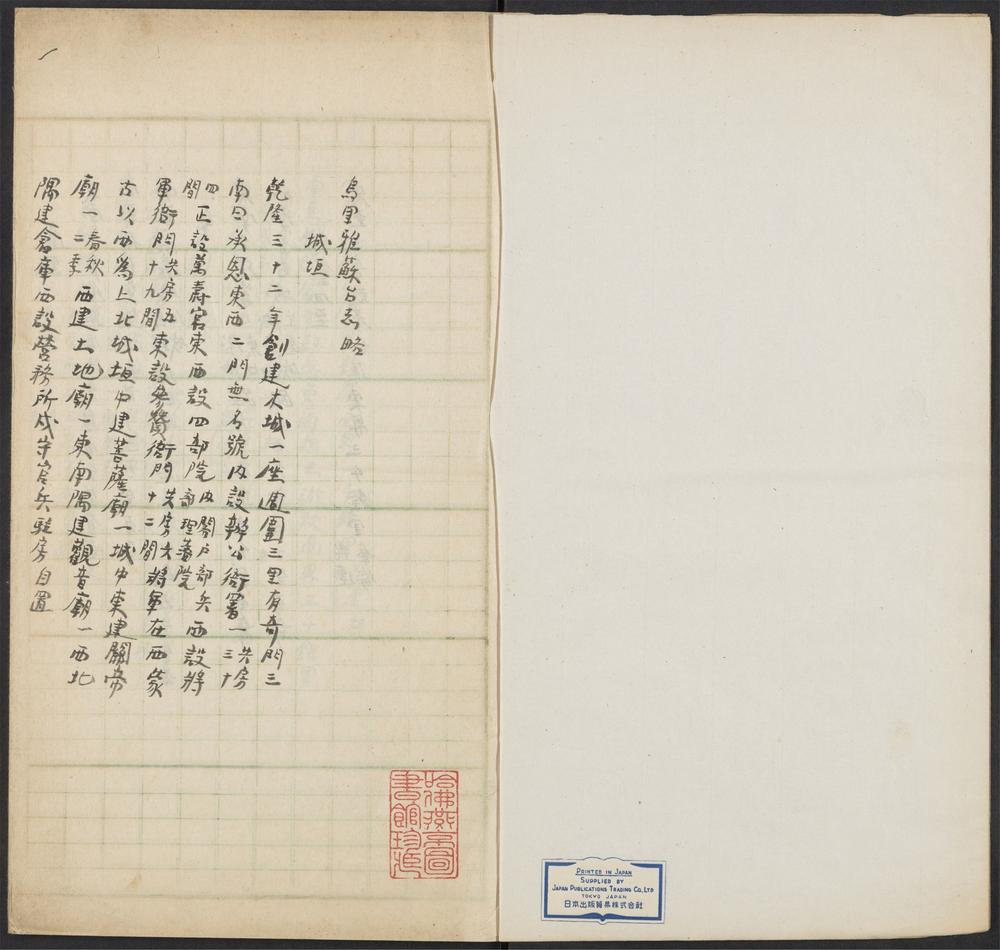 烏里雅蘇台志略
城垣
乾隆三十二年創建木城一座週圍三里有奇門三
南曰承恩東西二門無名號內設辦公衙署一共房三十
四間正設萬壽宮東西設四部院內閣戶部兵部理蕃院西設將
軍衙門共房五十九間東設參贊衙門共房六十二間將軍在西蒙
古以西爲上北城垣中建菩薩廟一城中東建關帝
廟一春秋二季西建土地廟一東南隅建觀音廟一西北
隅建倉庫西設營務所戍守官兵駐房自置
哈佛燕京圖
書館珍藏
PRINTED IN JAPAN
SUPPLIED BY
JAPAN PUBLICATIONS TRADING CO., LTD
TOKYO JAPAN
日本出版貿易株式会社